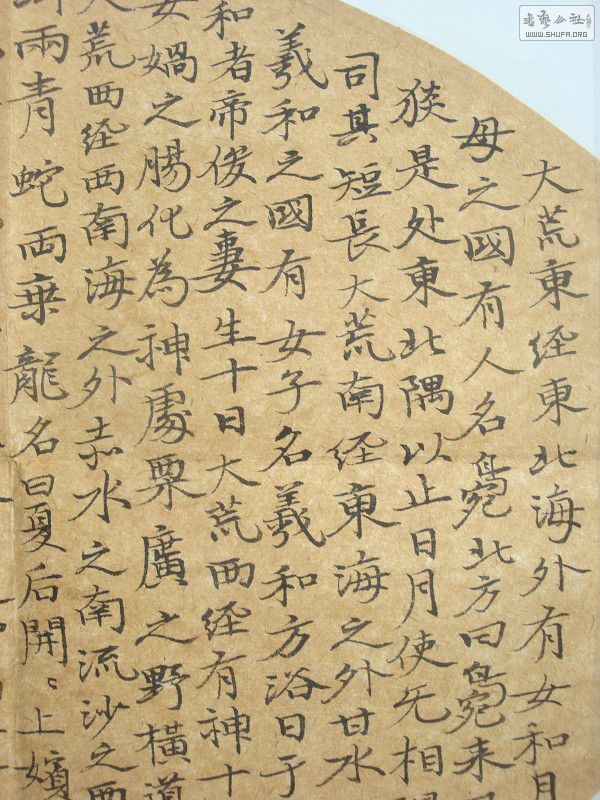 大荒東经東北海外有女和月
母之國有人名鵷北方曰鵷来
㺂是处東北隅以止日月使无相
司其短長大荒南经東海之外甘水
羲和之國有女子名羲和方浴日于
和者帝俊之妻生十日大荒西经有神十
女媧之腸化為神處栗廣之野橫道
荒西经西南海之外赤水之南流沙之西
兩青蛇両乘龍名曰夏后開〻上嬪
WWW.SHUFA.ORG